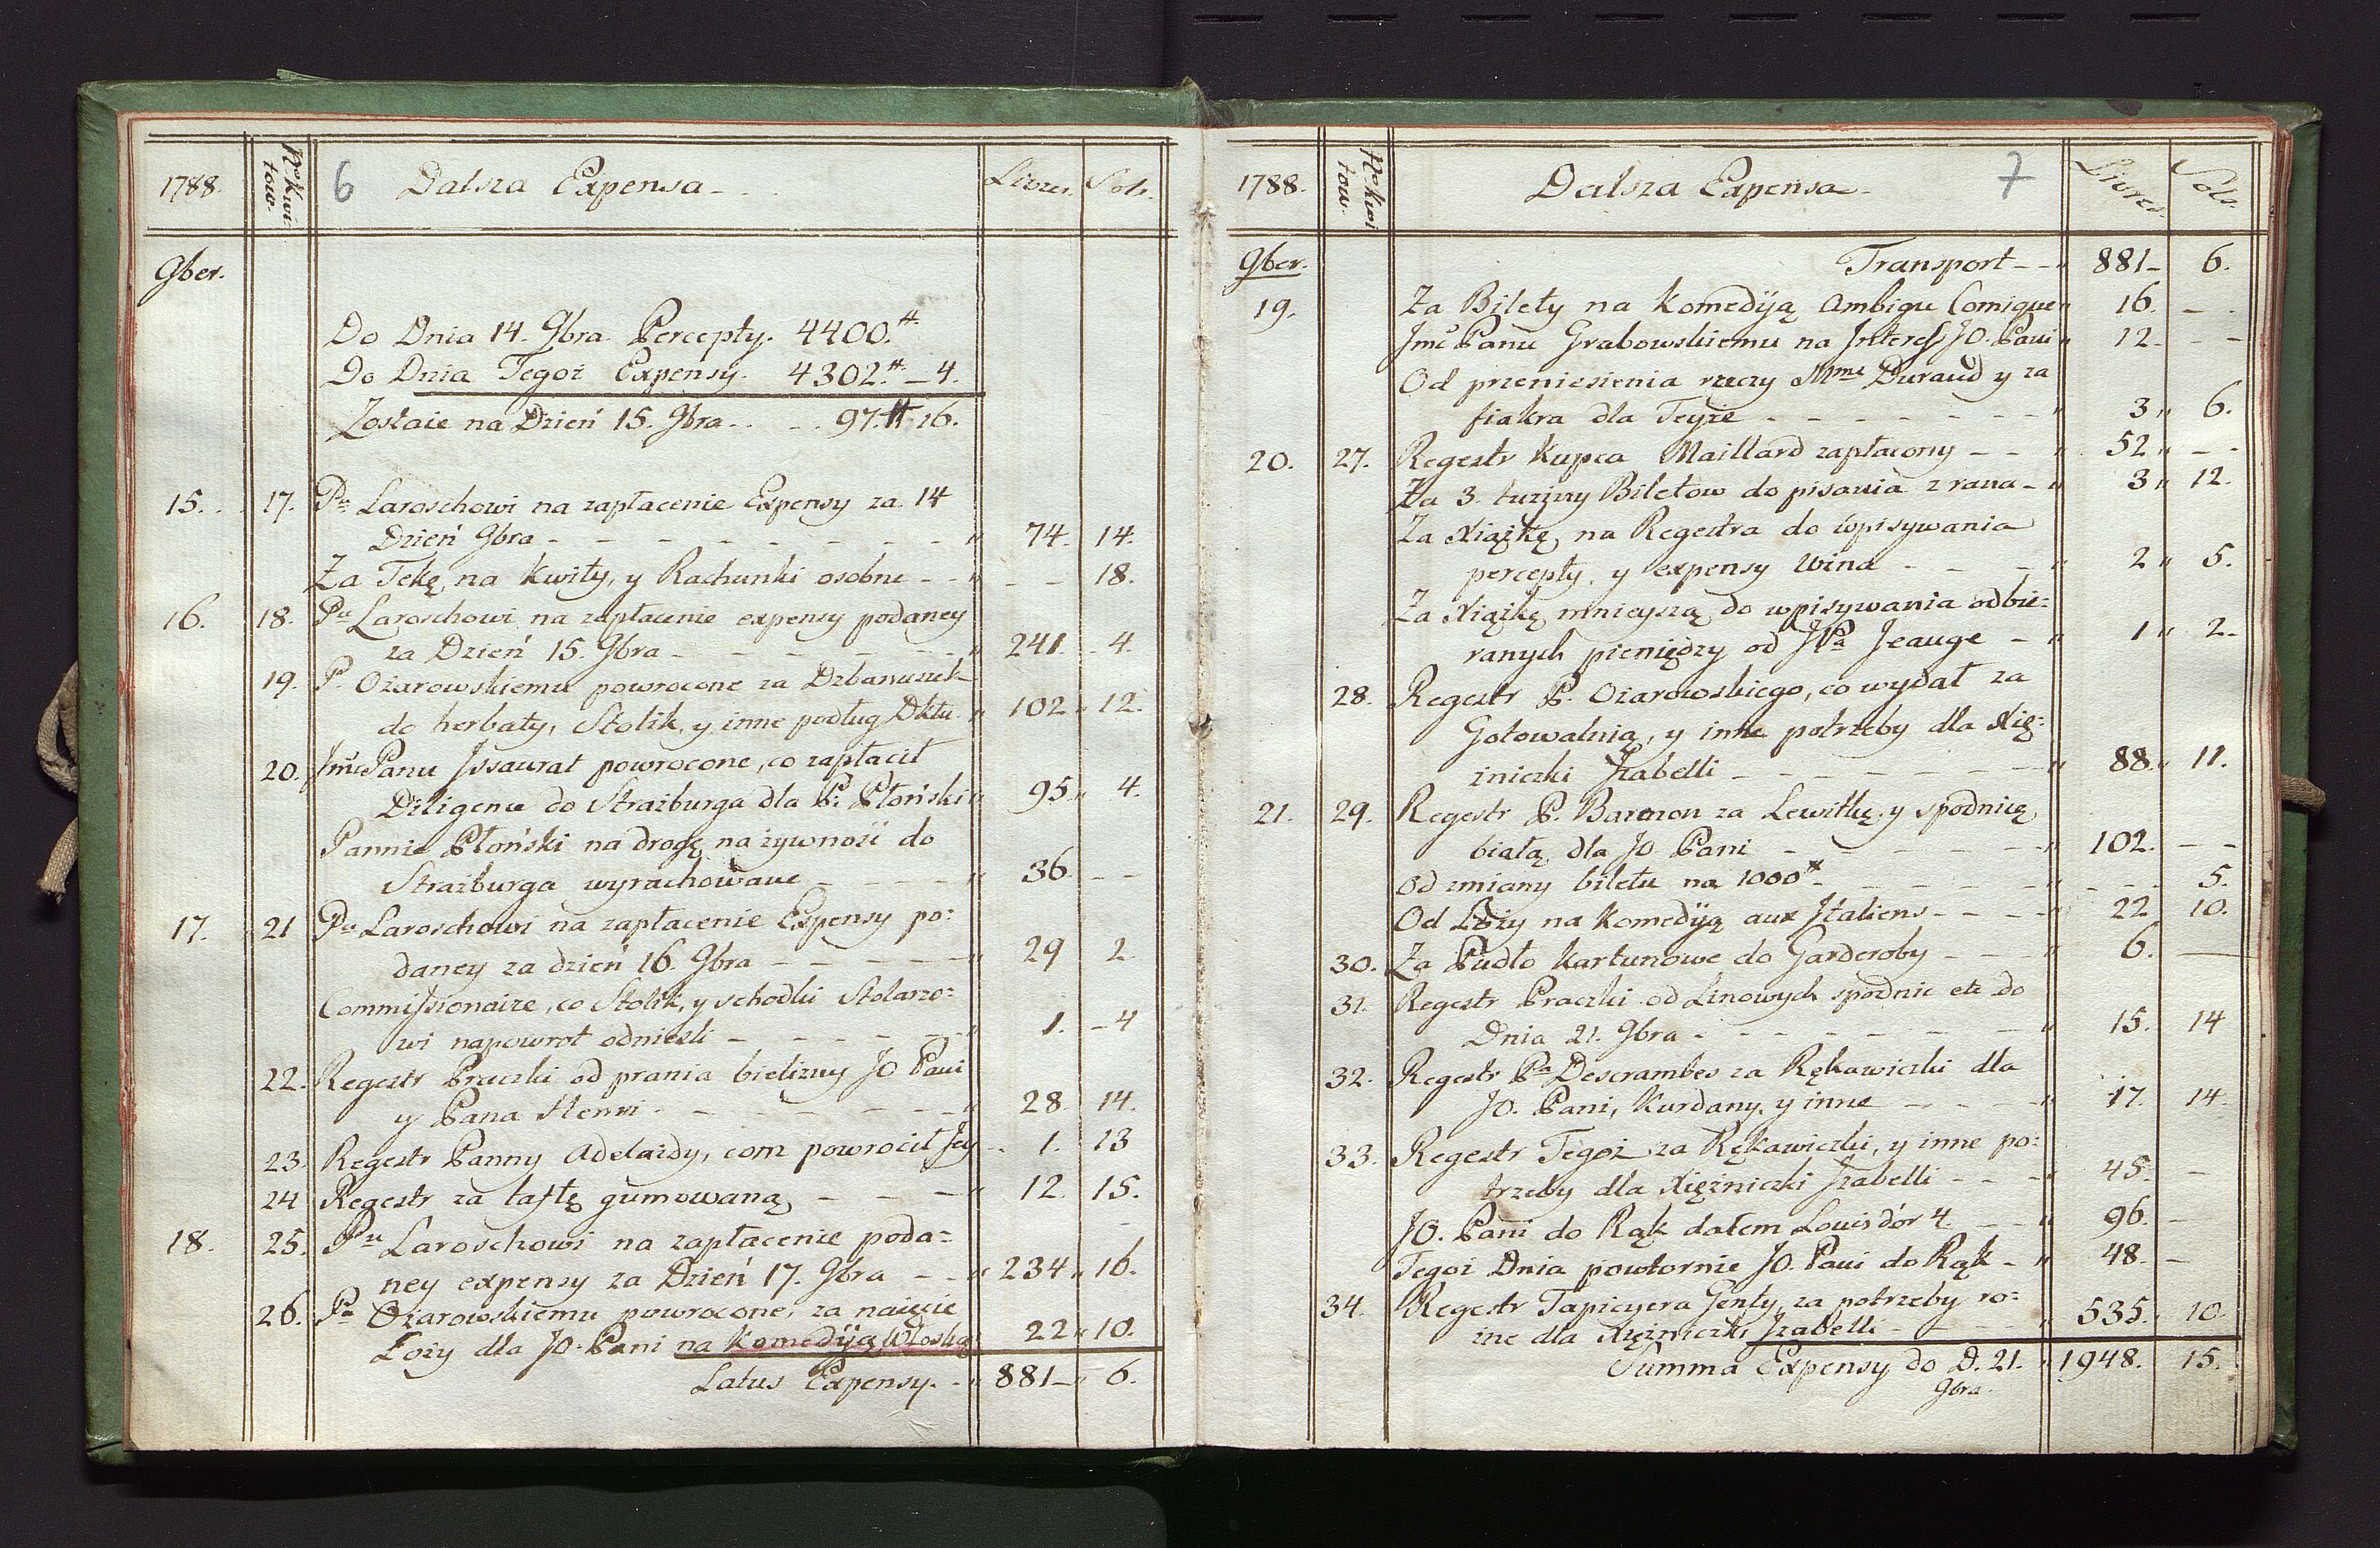 1788. Nr Kwi-
tow. 6 Dalsza Expensa Livres. Sols.
9ber.
Do Dnia 14. 9bra Percepty. 4400.#
Do Dnia Tegoż Expensy. 4302.# 4.
Zostaie na Dzień 15. 9bra 97.# 16.
15. 17. Pu Laroschowi na zapłacenie Expensy za 14
Dzień 9bra 74. 14.
Za Tekę na Kwity, y Rachunki osobne 18.
16. 18. Pu Laroschowi na zapłacenie expensy podaney
za Dzień 15. 9bra 241. 4.
19. P. Ożarowskiemu powrocone za Dzbanuszek
do herbaty, Stolik, y inne podług Dktu 102. 12.
20. Jmć Panu Issaurat powrocone, co zapłacił
Diligence do Strażburga dla P. Płoński 95. 4.
Pannie Płoński na drogę na żywność do
Strażburga wyrachowane 36.
17. 21 Pu Laroschowi na zapłacenie Expensy po:
daney za dzień 16. 9bra 29 2.
Commissionaire, co Stolik, y schodki Stolarzo:
wi napowrot odniesli 1. 4
22. Regestr Praczki od prania bielizny JO Pani
y Pana Henri 28. 14.
23. Regestr Panny Adelaidy, com powrocił Jey 1. 13
24 Regestr za taftę gumowaną 12. 15.
18. 25. Pu Laroschowi na zapłacenie poda=
ney expensy za Dzień 17. 9bra 234. 16.
26. Pu Ożarowskiemu powrocone, za naięcie
Loży dla JO. Pani na Komedyią Włoską 22. 10.
Latus Expensy. 881 6.
1788. Nr kwi
tow. Dalsza Expensa 7 Livres. Sols.
9ber. Transport 881 6.
19. Za Bilety na Komedyią Ambigu Comique 16.
Jmć Panu Grabowskiemu na Interes JO. Pani 12.
Od przeniesienia rzeczy Mme Duraud y za
fiakra dla Teyże 3 6.
20. 27. Regestr Kupca Maillard zapłacony 52
Za 3. tuziny Biletow do pisania z rana 3 12.
Za Xiążkę na Regestra do wpisywania
percepty, y expensy Wina 2 5.
Za Xiążkę mnieyszą do wpisywania odbie:
ranych pieniędzy od JPa Jeauge 1 2.
28. Regestr P. Ożarowskiego, co wydał za
Gotowalnią, y inne potrzeby dla Xię:
żniczki Izabelli 88. 11.
21. 29. Regestr P. Barmon za Lewitkę y spodnicę
białą dla JO Pani 102.
Od zmiany biletu na 1000# 5.
Od Loży na Komedyią aux Italiens 22 10.
30. Za Pudło Kartunowe do Garderoby 6.
31. Regestr Praczki od Linowych spodnic etc do
Dnia 21. 9bra 15. 14
32. Regestr Pa Descrambes za Rękawiczki dla
JO. Pani, Kurdany, y inne 17. 14
33. Regestr Tegoż za Rękawiczki, y inne po:
trzeby dla Xiężniczki Izabelli 45.
JO. Pani do Rąk dałem Louis d'or 4. 96.
Tegoż Dnia powtornie JO. Pani do Rąk 48.
34. Regestr Tapicyera Genty, za potrzeby ro:
żne dla Xiężniczki Izabelli 535. 10.
Summa Expensy do D. 21. 1948. 15.
9bra.